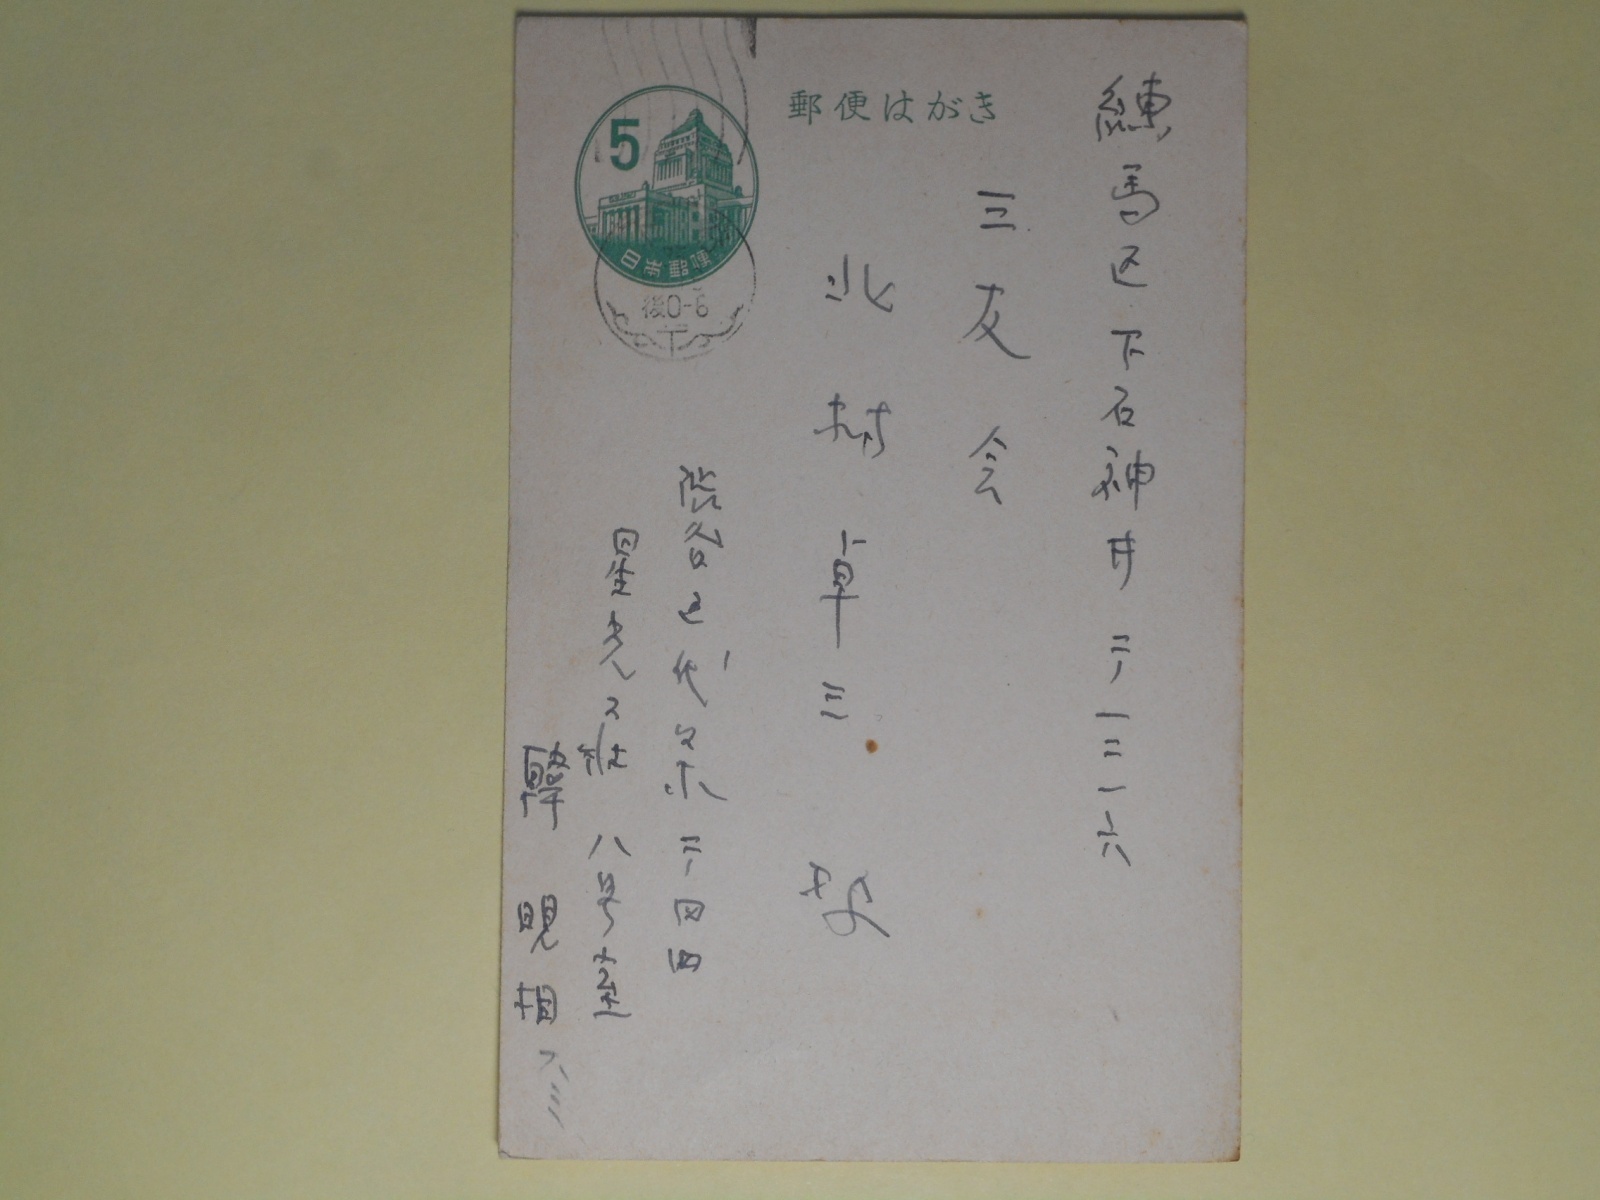 郵便はがき
5
日本郵便
後0-6
練馬区下石神井二ノ一三一六
三友会
北村卓三様
渋谷区代々木二ノ四四
星光荘八号室
韓晛相